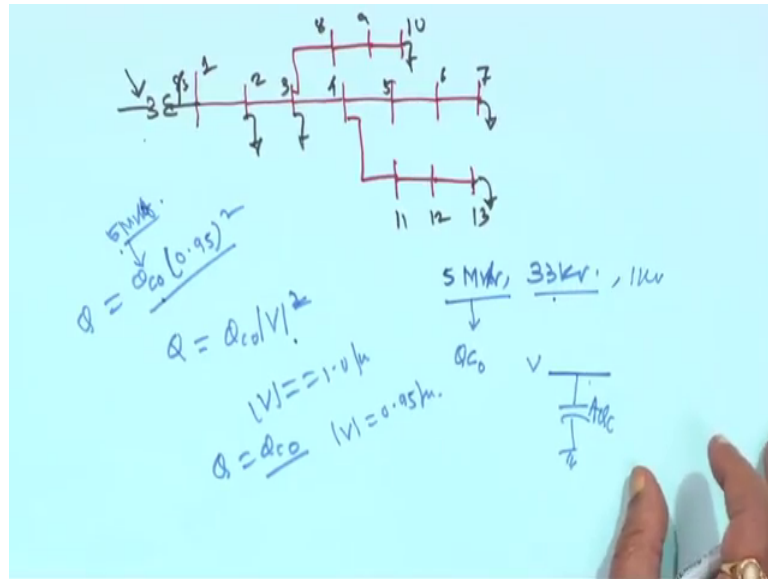 8 9 10
S/S 1 2 3 4 5 6 7
11 12 13
5 MVAr.
Q = Qco (0.95)²
Q = Qco|V|².
|V| = = 1.0 pu
Q = Qco |V| = 0.95 pu.
5 MVAr, 33 kV. , 11kV
Qco
V